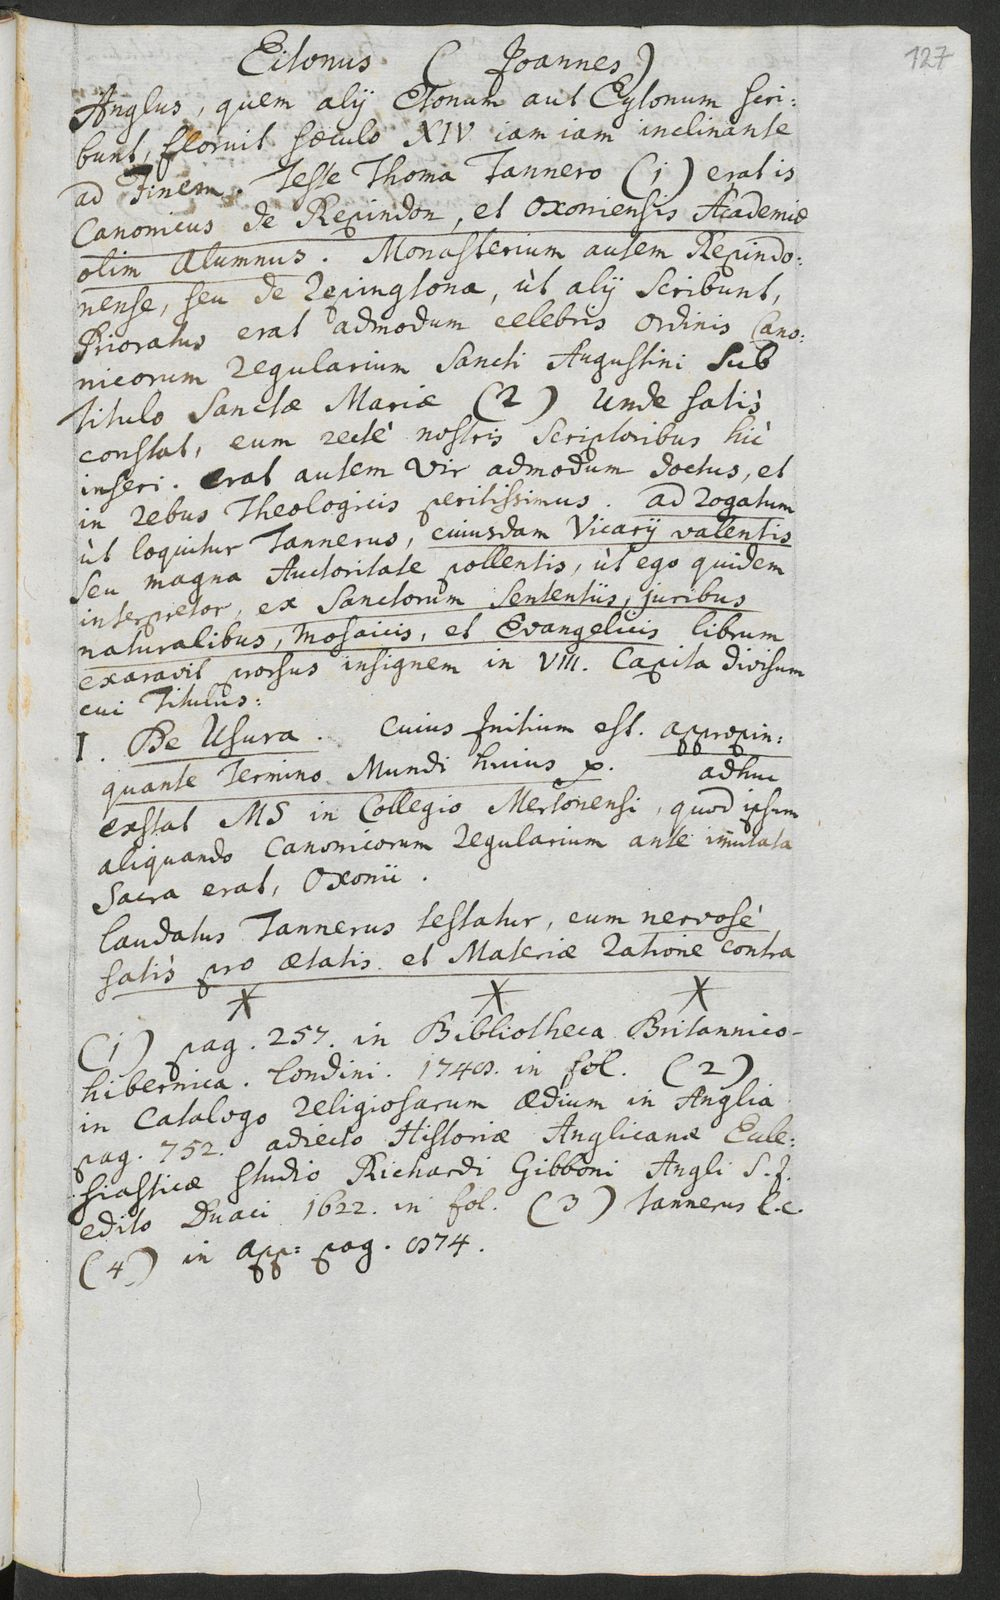 127
Eitonus (Joannes)
Anglus, quem alij Etonum aut Eytonum scri:
bunt, floruit sæculo XIV iam iam inclinante
ad Finem. Teste Thoma Tannero (1) erat is
Canonicus de Repindon, et Oxoniensis Academiæ
olim Alumnus. Monasterium autem Repindo:
nense, seu de Repingtona, ùt alij scribunt,
Prioratus erat admodum celebris Ordinis Cano:
nicorum regularium Sancti Augustini Sub
titulo Sanctæ Mariæ (2) Unde satis
constat, eum rectè nostris Scriptoribus hic
inseri. erat autem Vir admodum doctus, et
in rebus Theologicis peritissimus. ad rogatum
ùt loquitur Tannerus, cuiusdam Vicarij valentis
seu magna Auctoritate pollentis, ùt ego quidem
interpretor, ex Sanctorum Sententiis, juribus
naturalibus, Mosaicis, et Evangelicis librum
exaravit prorsus insignem in VIII. Capita divisum
cui Titulus:
I. De Usura. Cuius Initium est. appropin:
quante Termino Mundi huius p. adhuc
exstat MS in Collegio Mertonensi, quod ipsum
aliquando Canonicorum Regularium ante imutata
Sacra erat, Oxonii.
laudatus Tannerus testatur, eum nervosè
satis pro ætatis et Materiæ Ratione contra
(1) pag. 257. in Bibliotheca Britannico-
hibernica. Londini. 1748. in fol. (2)
in Catalogo religiosarum ædium in Anglia
pag. 752. adiecto Historiæ Anglicanæ Eccle:
siasticæ studio Richardi Gibboni Angli S.J.
edito Duaci 1622. in fol. (3) Tannerus l.c.
(4) in app: pag. 874.